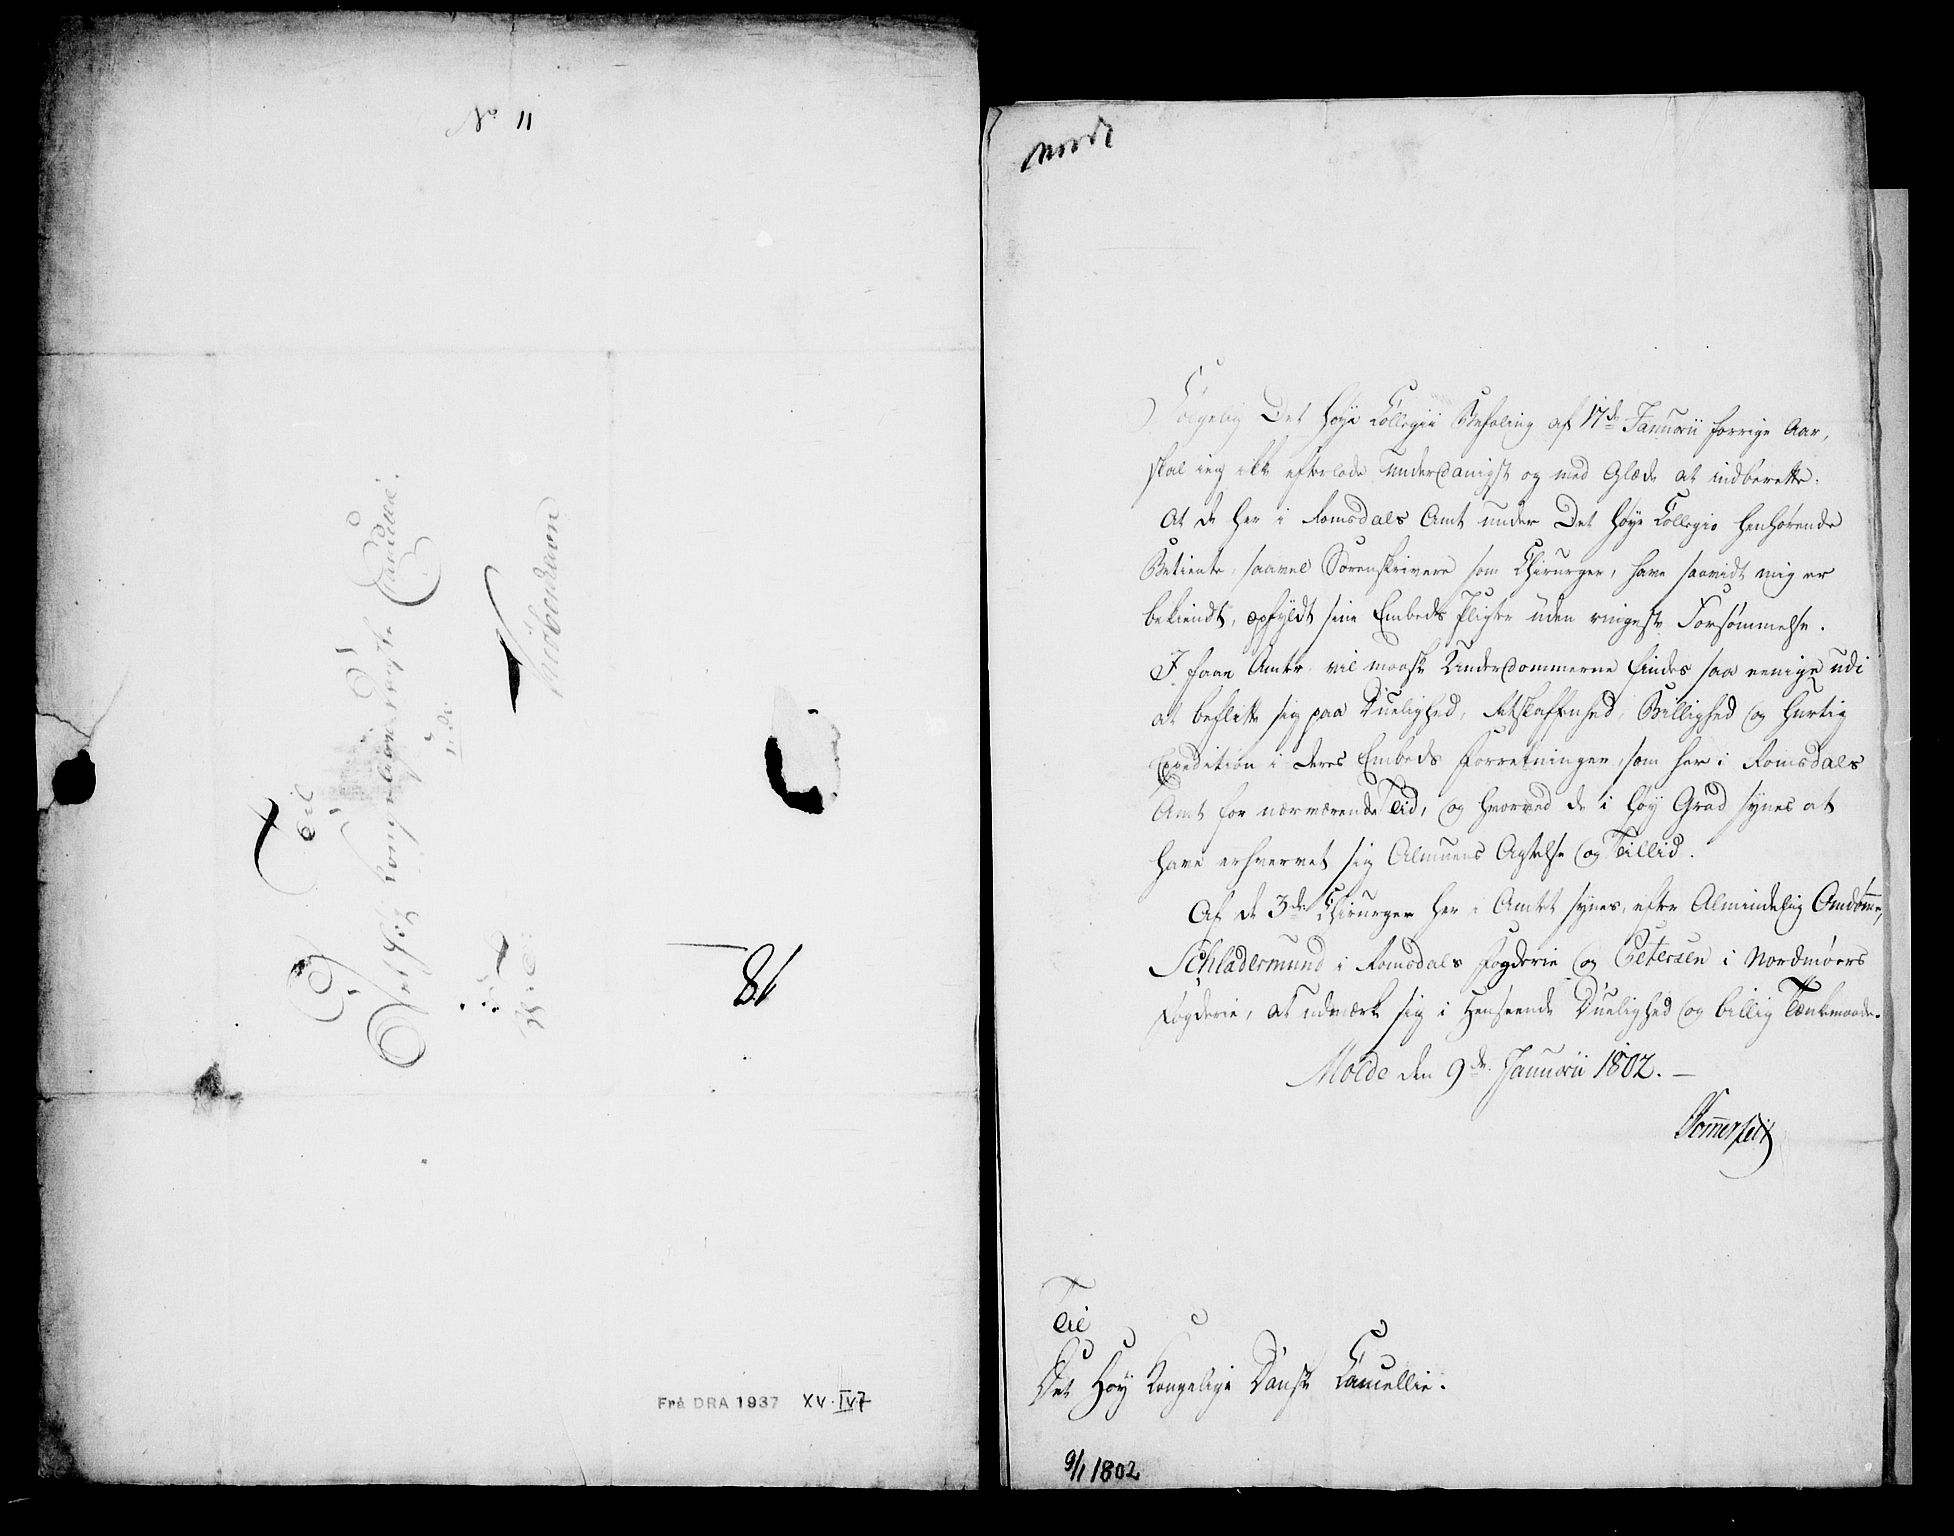 No 11
Til
Det Høj Kongelige Danske Cancellie.
udi
Kiöbenhavn
18
Frå DRA 1937 XV.IV.7
Følgelig Det Høye Collegii Befaling af 17de Januarii forrige Aar,
skal ieg ikke efterlade underdanigst og med Glæde at indberette.
At de her i Romsdals Amt under Det høye Collegio henhørende
Betiente, saavel Sorenskrivere som Chirurger, have saavidt mig er
bekiendt, opfyldt sine Embeds Pligter uden ringeste Forsømmelse.
I faae Amter vil maaskee Underdommerne findes saa eenige udi
at beflitte sig paa Duelighed, Retskaffenhed, Billighed og hurtig
Expedition i deres Embeds Forretninger, som her i Romsdals
Amt for nærværende Tid, og hvorved de i høy Grad synes at
have erhvervet sig Almuens Agtelse og Tillid.
Af de 3de Chirurger her i Amtet synes, efter Almindelig Omdømme,
Schladermund i Romsdals Fogderie og Petersen i Nordmøers
Fogderie, at udmærke sig i Henseende Duelighed og billig Tænkemaade.
Molde den 9de Januarii 1802. —
Sommerfelt
Til
Det Høy Kongelige Danske Cancellie.
9/1 1802